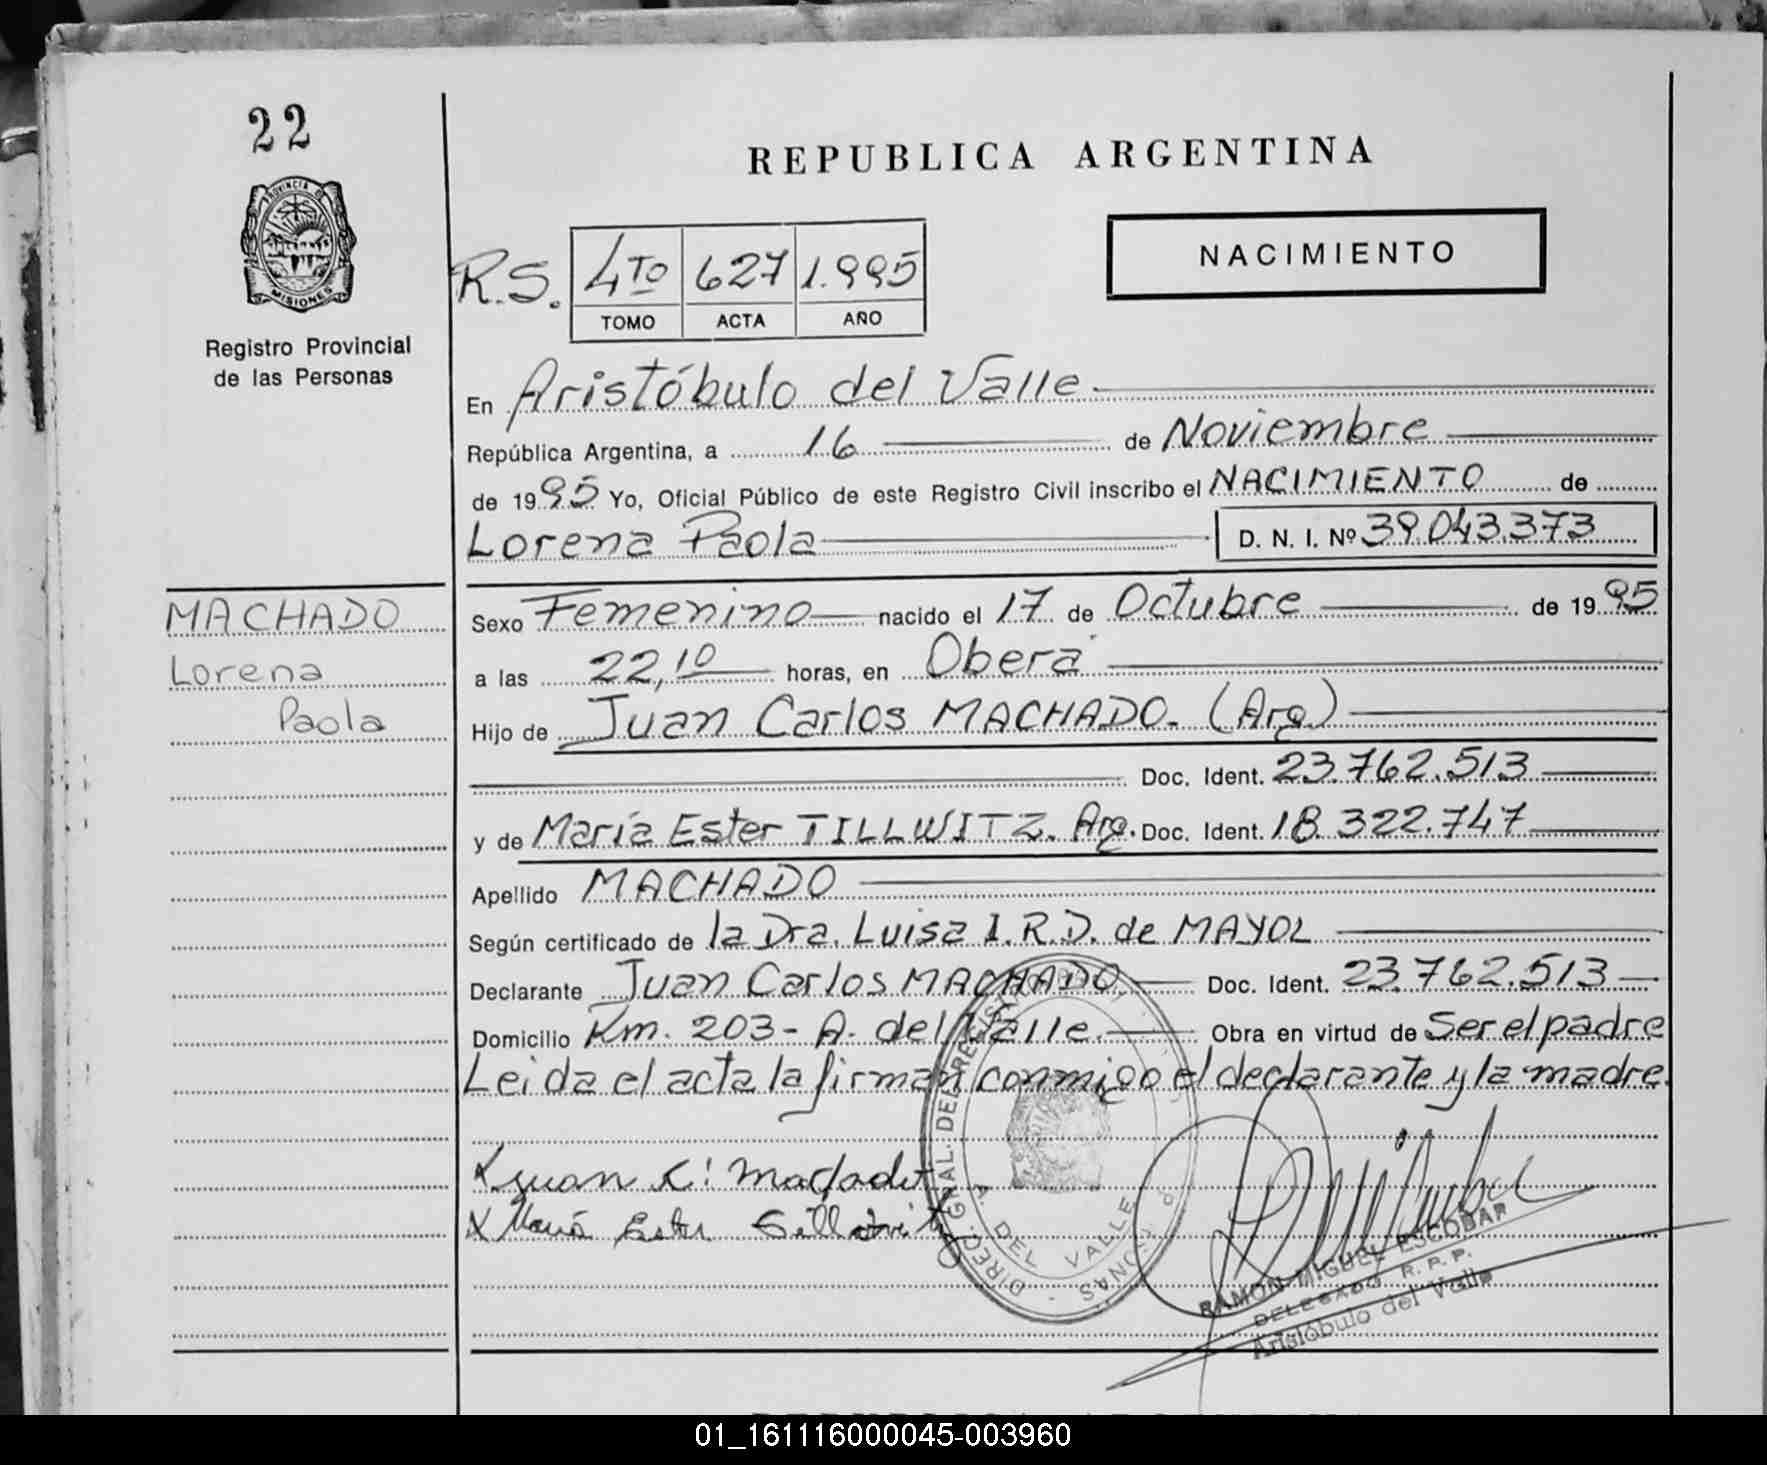 22
PROVINCIA DE
MISIONES
Registro Provincial
de las Personas
REPUBLICA ARGENTINA
R.S. 4TO 627 1.995
TOMO ACTA AÑO
NACIMIENTO
En Aristóbulo del Valle
República Argentina, a 16 de Noviembre
de 1995 Yo, Oficial Público de este Registro Civil inscribo el NACIMIENTO de
Lorena Paola D. N. I. Nº 39.043.373
MACHADO
Lorena
Paola
Sexo Femenino nacido el 17 de Octubre de 1995
a las 22,10 horas, en Oberá
Hijo de Juan Carlos MACHADO. (Arg.)
Doc. Ident. 23.762.513
y de María Ester TILLWITZ. Arg. Doc. Ident. 18.322.747
Apellido MACHADO
Según certificado de la Dra. Luisa I.R.D. de MAYOL
Declarante Juan Carlos MACHADO. Doc. Ident. 23.762.513
Domicilio Km. 203 - A. del Valle. Obra en virtud de Ser el padre
Leida el acta la firman conmigo el declarante y la madre.
X Juan C. Machado
X María Ester
DIREC. GRAL. DEL REGISTRO
A. DEL VALLE
RAMON MIGUEL ESCOBAR
DELEGADO R. P. P.
Aristóbulo del Valle
01_161116000045-003960